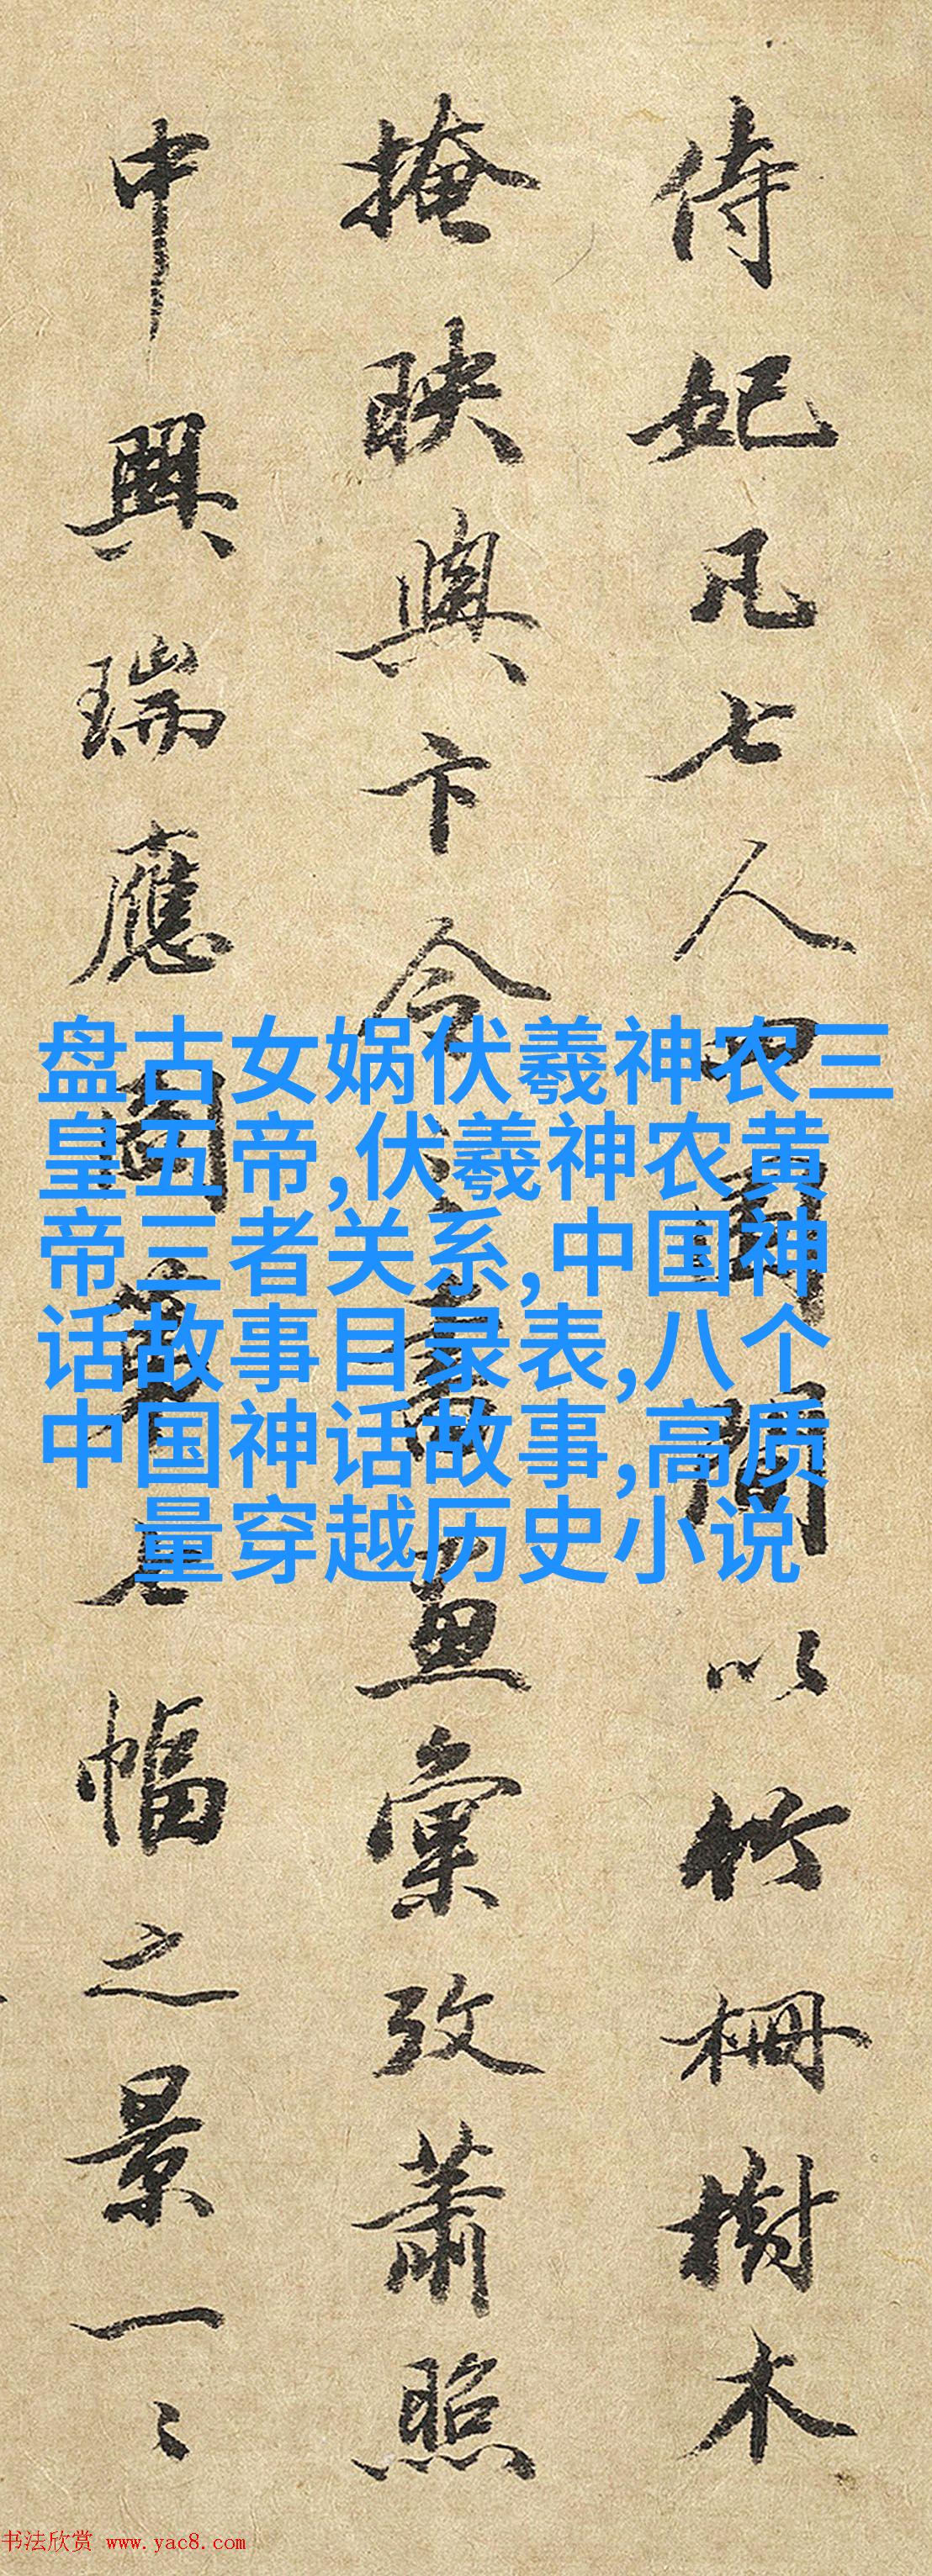 侍妃凡七人四間以竹柵樹木
掩映與卞令之書畫彙攷蕭照
中興瑞應圖第七幅之景一〻
盘古女娲伏羲神农三
皇五帝,伏羲神农黄
帝三者关系,中国神
话故事目录表,八个
中国神话故事,高质
量穿越历史小说
书法欣赏 www.yac8.com